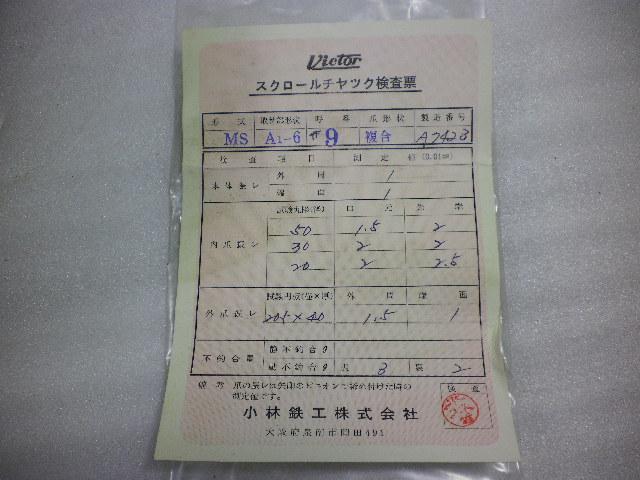 Victor
スクロールチヤツク検査票
形式 取付部形状 呼番 爪形状 製造番号
MS A1-6 9 複合 A7423
検査項目 測定値(0.01㎜)
本体振レ 外周 1
端面 1
内爪振レ 試験丸棒(径) 口元 先端
50 1.5 2
30 2 2
20 2 2.5
外爪振レ 試験円板(径×厚) 外周 端面
205×40 1.5 1
不釣合量 静不釣合g
動不釣合g 表 3 裏 2
備考 爪の振レは矢印のピニオンで締め付けた時の
測定値です。
検査
小林鉄工株式会社
大阪府泉南市岡田491